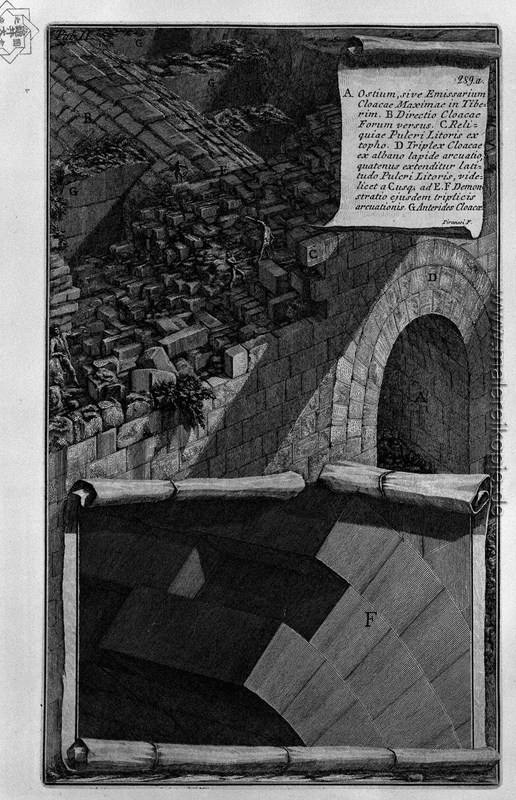 Tab. II.
G
289.a
A. Ostium, sive Emissarium
Cloacae Maximae in Tibe-
rim. B Directio Cloacae
Forum versus. C. Reli-
quiae Pulcri Litoris ex
topho. D Triplex Cloacae
ex albano lapide arcuatio,
quatenus extenditur lati-
tudo Pulcri Litoris, vide-
licet a C usq. ad E. F. Demon-
stratio ejusdem triplicis
arcuationis. G Anterides Cloacae
Piranesi F.
G
B
G
C
D
A
F